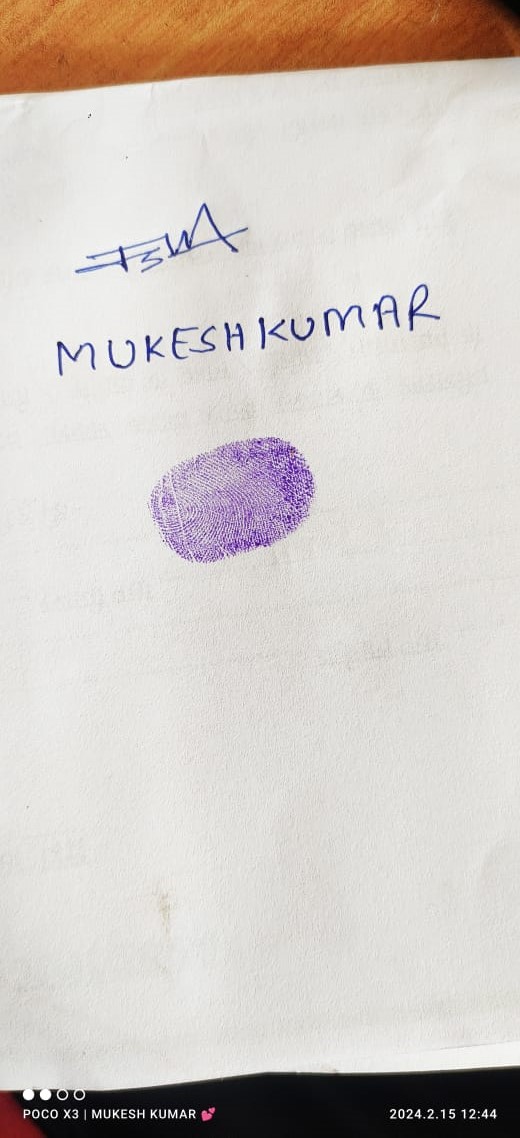 MUKESH KUMAR
POCO X3 | MUKESH KUMAR 💕
2024.2.15 12:44